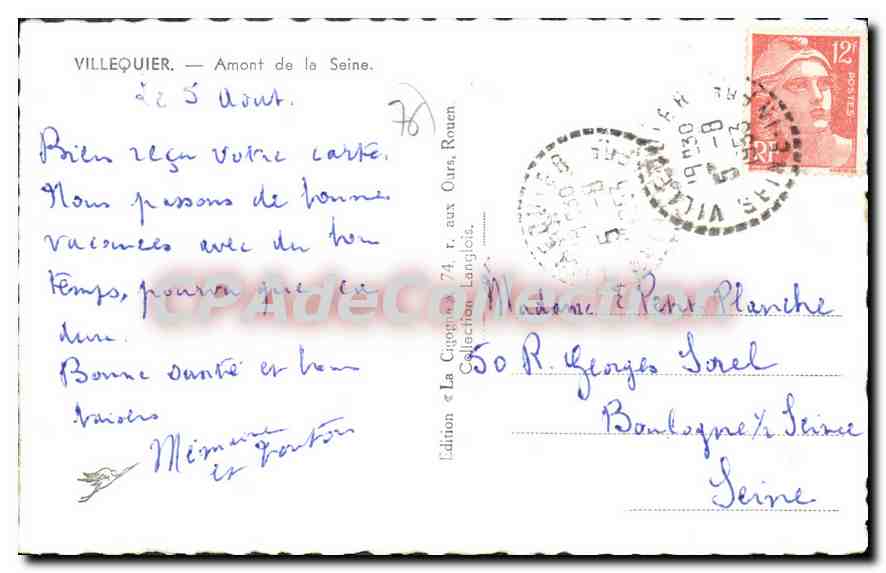 VILLEQUIER. — Amont de la Seine.
Le 5 Aout.
Bien reçu votre carte.
Nous passons de bonnes
vacances avec du bon
temps, pourvu que ça
dure.
Bonne santé et bons
baisers
Mémaine
et Tonton
76
Edition « La Cigogne » 74, r. aux Ours, Rouen
Collection Langlois.
12F
POSTES
RF
19H30
5 - 8
1953
Madame E Petit Planche
50 R. Georges Sorel
Boulogne s/ Seine
Seine
CPAdeCollection